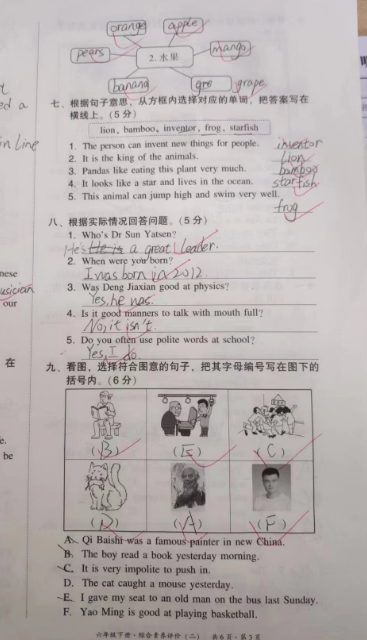 orange apple
pears 2. 水果 mango
banana gre grape
七、根据句子意思，从方框内选择对应的单词，把答案写在
横线上。(5分)
lion, bamboo, inventor, frog, starfish
1. The person can invent new things for people. inventor
2. It is the king of the animals. lion
3. Pandas like eating this plant very much. bamboo
4. It looks like a star and lives in the ocean. starfish
5. This animal can jump high and swim very well.
frog
八、根据实际情况回答问题。(5分)
1. Who's Dr Sun Yatsen?
He's He is a great leader.
2. When were you born?
I was born in 2012.
3. Was Deng Jiaxian good at physics?
Yes, he was.
4. Is it good manners to talk with mouth full?
No, it isn't.
5. Do you often use polite words at school?
Yes, I do.
九、看图，选择符合图意的句子，把其字母编号写在图下的
括号内。(6分)
(B) (E) (C)
(D) (A) (F)
A. Qi Baishi was a famous painter in new China.
B. The boy read a book yesterday morning.
C. It is very impolite to push in.
D. The cat caught a mouse yesterday.
E. I gave my seat to an old man on the bus last Sunday.
F. Yao Ming is good at playing basketball.
六年级下册·综合素养评价(二) 共6页·第3页
ed a
in line
nese
usician
our
在
e.
be